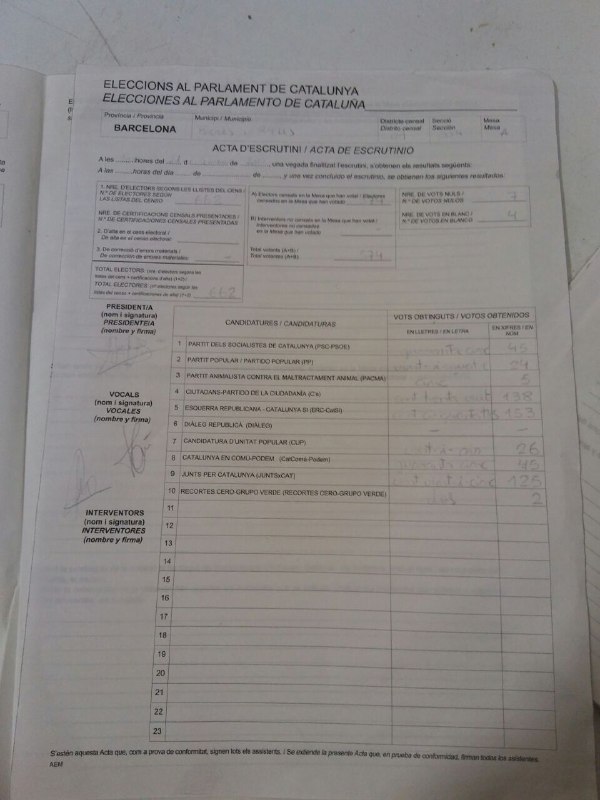 ELECCIONS AL PARLAMENT DE CATALUNYA
ELECCIONES AL PARLAMENTO DE CATALUÑA
Província / Provincia
BARCELONA
Municipi / Municipio
Districte censal
Distrito censal
Secció
Sección
Mesa
Mesa A
ACTA D'ESCRUTINI / ACTA DE ESCRUTINIO
A les hores del d de de , una vegada finalitzat l'escrutini, s'obtenen els resultats següents:
A las horas del día de de y una vez concluido el escrutinio, se obtienen los siguientes resultados:
1. NRE. D'ELECTORS SEGONS LES LLISTES DEL CENS /
N.º DE ELECTORES SEGÚN
LAS LISTAS DEL CENSO 662
NRE. DE CERTIFICACIONS CENSALS PRESENTADES /
N.º DE CERTIFICACIONES CENSALES PRESENTADAS
2. D'alta en el cens electoral /
De alta en el censo electoral
3. De correcció d'errors materials /
De corrección de errores materiales
TOTAL ELECTORS (nre. d'electors segons les
llistes del cens + certificacions d'alta) (1+2) /
TOTAL ELECTORES (n.º electores según las
listas del censo + certificaciones de alta) (1+2) 662
A) Electors censats en la Mesa que han votat / Electores
censados en la Mesa que han votado
B) Interventors no censats en la Mesa que han votat /
Interventores no censados
en la Mesa que han votado
Total votants (A+B) /
Total votantes (A+B) 574
NRE. DE VOTS NULS /
N.º DE VOTOS NULOS 7
NRE. DE VOTS EN BLANC /
N.º DE VOTOS EN BLANCO 4
PRESIDENT/A
(nom i signatura)
PRESIDENTE/A
(nombre y firma)
VOCALS
(nom i signatura)
VOCALES
(nombre y firma)
INTERVENTORS
(nom i signatura)
INTERVENTORES
(nombre y firma)
CANDIDATURES / CANDIDATURAS
VOTS OBTINGUTS / VOTOS OBTENIDOS
EN LLETRES / EN LETRA
EN XIFRES / EN NÚM.
1 PARTIT DELS SOCIALISTES DE CATALUNYA (PSC-PSOE) 45
2 PARTIT POPULAR / PARTIDO POPULAR (PP) 24
3 PARTIT ANIMALISTA CONTRA EL MALTRACTAMENT ANIMAL (PACMA) cinc 5
4 CIUTADANS-PARTIDO DE LA CIUDADANÍA (C's) 138
5 ESQUERRA REPUBLICANA - CATALUNYA SÍ (ERC-CatSí) 153
6 DIÀLEG REPUBLICÀ (DIÀLEG) - -
7 CANDIDATURA D'UNITAT POPULAR (CUP) 26
8 CATALUNYA EN COMÚ-PODEM - (CatComú-Podem) 45
9 JUNTS PER CATALUNYA (JUNTSxCAT) 125
10 RECORTES CERO-GRUPO VERDE (RECORTES CERO-GRUPO VERDE) dos 2
11
12
13
14
15
16
17
18
19
20
21
22
23
S'estén aquesta Acta que, com a prova de conformitat, signen tots els assistents. / Se extiende la presente Acta que, en prueba de conformidad, firman todos los asistentes.
AEM